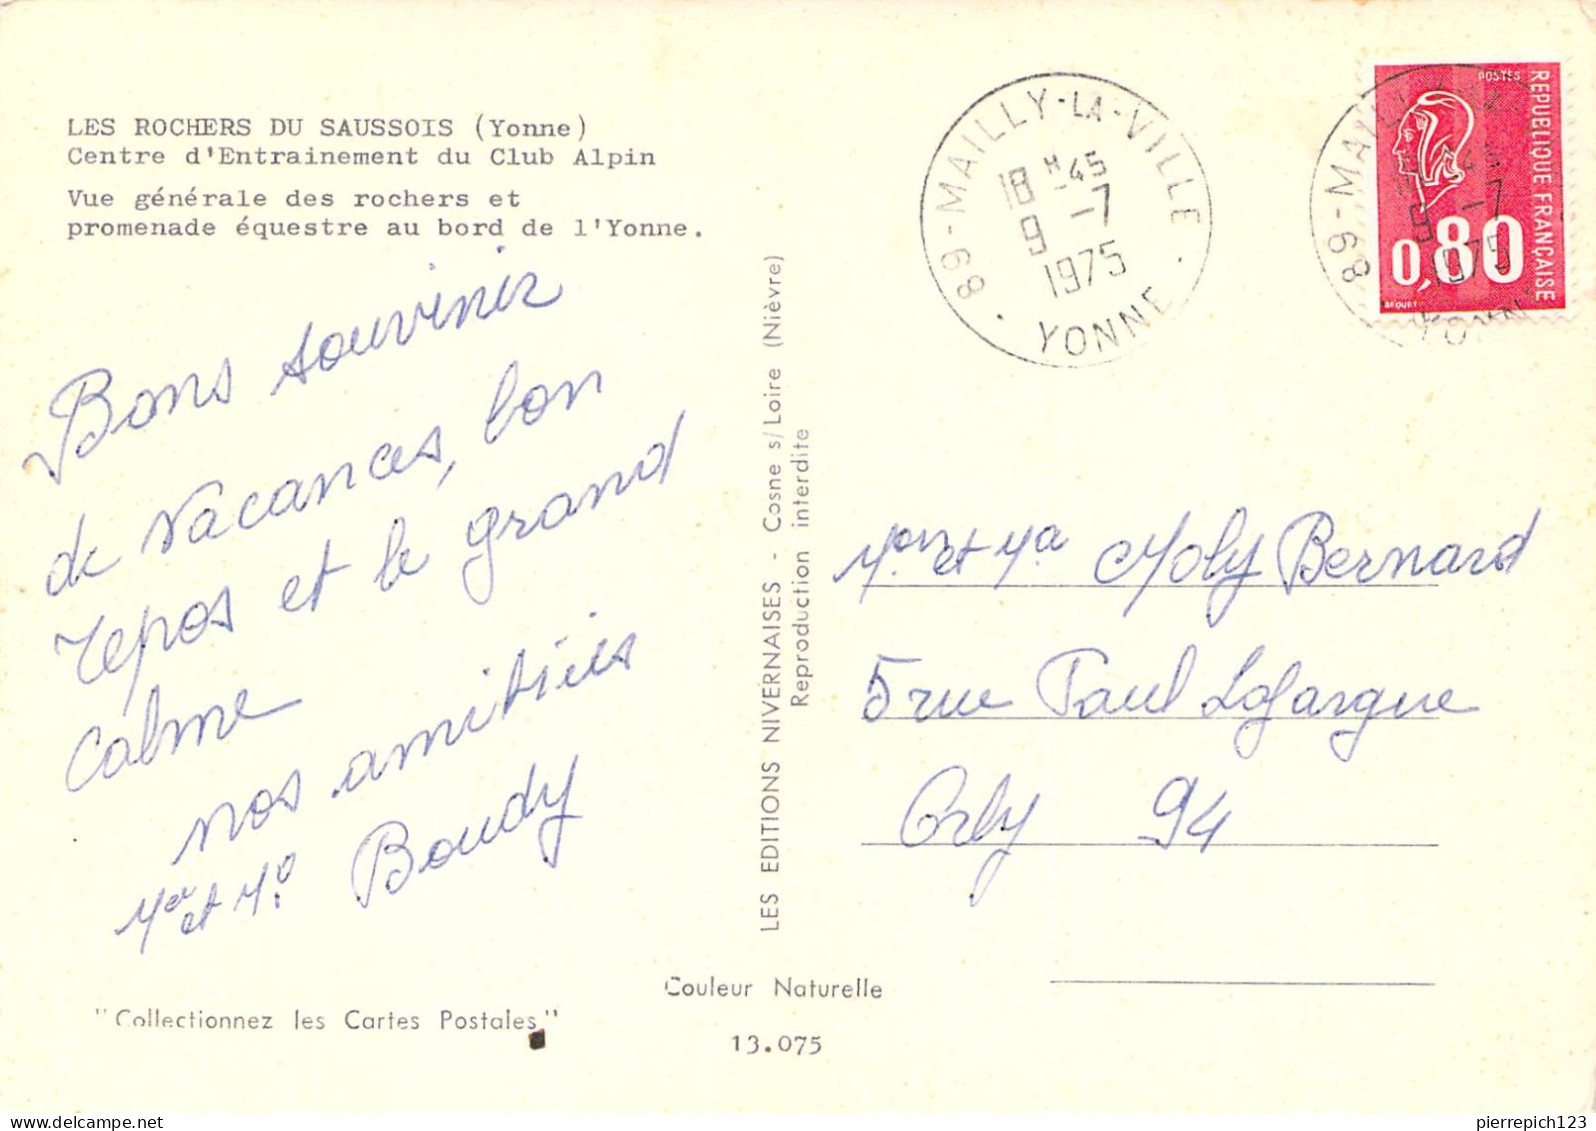 LES ROCHERS DU SAUSSOIS (Yonne)
Centre d'Entrainement du Club Alpin
Vue générale des rochers et
promenade équestre au bord de l'Yonne.
Bons souvenir
de Vacances, bon
repos et le grand
calme
nos amitiés
et Boudy
"Collectionnez les Cartes Postales"
LES EDITIONS NIVERNAISES - Cosne s/Loire (Nièvre)
Reproduction interdite
Couleur Naturelle
13.075
89 - MAILLY-LA-VILLE
18 H 45
9 -7
1975
YONNE
POSTES
REPUBLIQUE FRANÇAISE
0,80
BEQUET
89 - MAILLY
9 -7
1975
YONNE
et Moly Bernard
5 rue Paul Lafargue
Orly 94
pierrepich123